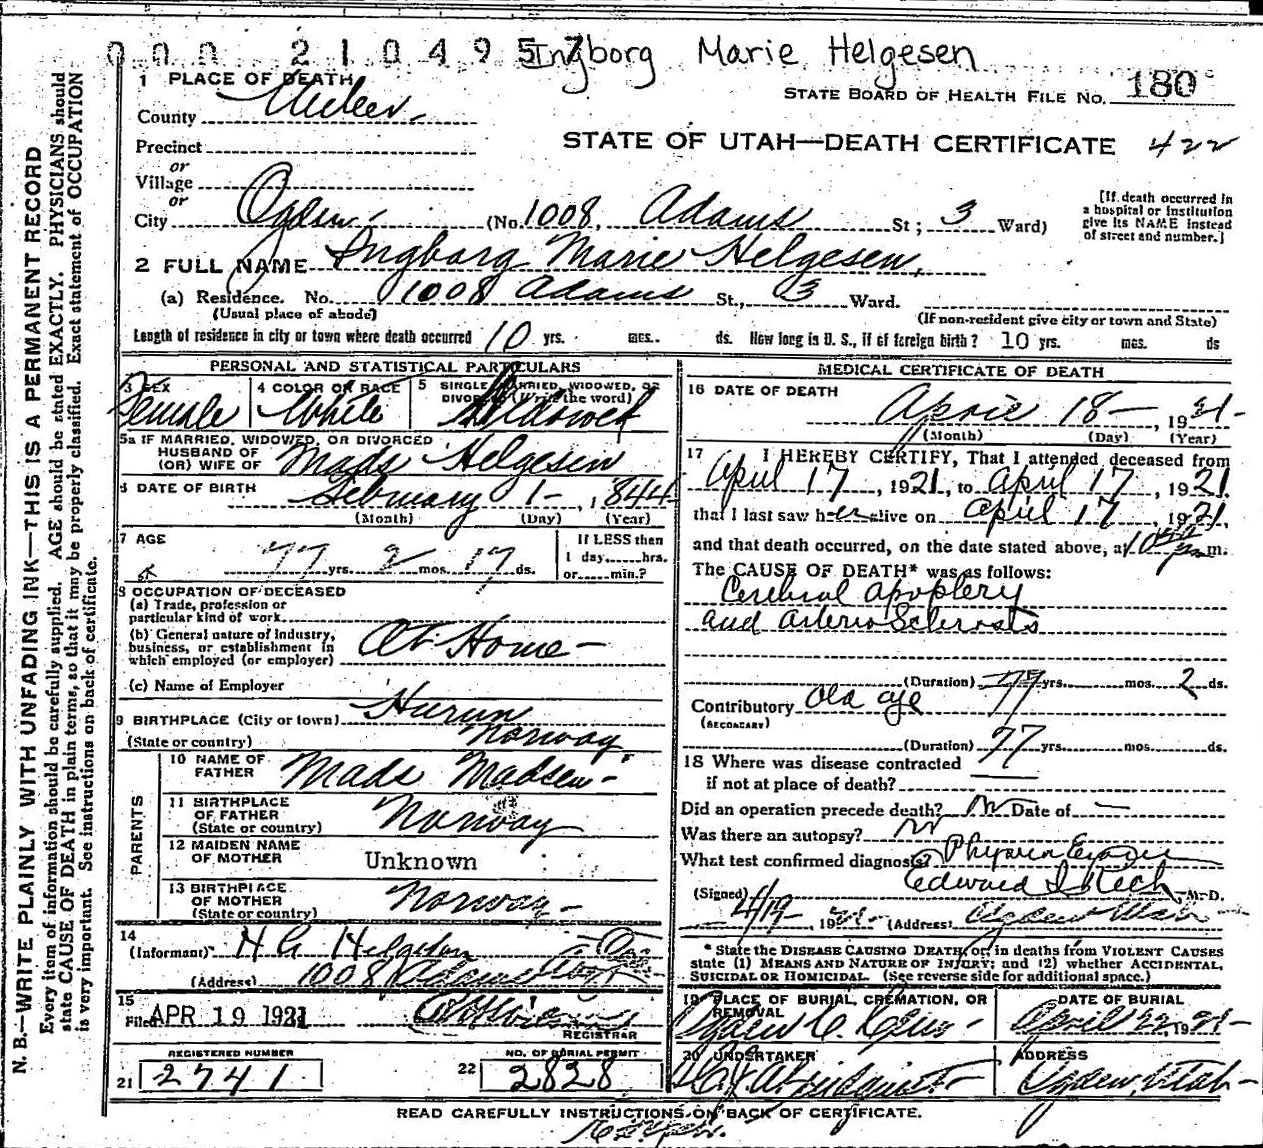 000 2104957 Ingborg Marie Helgesen
1 PLACE OF DEATH
STATE BOARD OF HEALTH FILE NO. 180
County
STATE OF UTAH—DEATH CERTIFICATE 422
Precinct
or
Village
or
City Ogden (No. 1008, Adams St; 3 Ward)
[If death occurred in a hospital or institution give its NAME instead of street and number.]
2 FULL NAME Ingborg Marie Helgesen,
(a) Residence. No. 1008 Adams St., 3 Ward.
(Usual place of abode)
(If non-resident give city or town and State)
Length of residence in city or town where death occurred 10 yrs. mos. ds. How long in U. S., if of foreign birth? 10 yrs. mos. ds
PERSONAL AND STATISTICAL PARTICULARS
3 SEX Female
4 COLOR OR RACE White
5 SINGLE, MARRIED, WIDOWED, OR DIVORCED (Write the word) Widowed
5a IF MARRIED, WIDOWED, OR DIVORCED
HUSBAND OF
(OR) WIFE OF Mads Helgesen
6 DATE OF BIRTH February 1-, 1844
(Month) (Day) (Year)
7 AGE 77 yrs. 2 mos. 17 ds.
If LESS then
1 day,......hrs.
or......min.?
8 OCCUPATION OF DECEASED
(a) Trade, profession or
particular kind of work
(b) General nature of industry,
business, or establishment in
which employed (or employer) At Home-
(c) Name of Employer
9 BIRTHPLACE (City or town) Hurum
(State or country) Norway
PARENTS
10 NAME OF
FATHER Mads Madsen-
11 BIRTHPLACE
OF FATHER
(State or country) Norway
12 MAIDEN NAME
OF MOTHER Unknown
13 BIRTHPLACE
OF MOTHER
(State or country) Norway-
14
(Informant) H G Helgesen
(Address) 1008 Adams
15
Filed APR 19 1921
REGISTRAR
REGISTERED NUMBER
21 2741
NO. OF BURIAL PERMIT
22 2828
MEDICAL CERTIFICATE OF DEATH
16 DATE OF DEATH
April 18-, 1921-
(Month) (Day) (Year)
17 I HEREBY CERTIFY, That I attended deceased from
April 17, 1921, to April 17, 1921,
that I last saw her alive on April 17, 1921,
and that death occurred, on the date stated above, at 10 m.
The CAUSE OF DEATH* was as follows:
Cerebral apoplexy
and Arterio Sclerosis
(Duration) 77 yrs. mos. 2 ds.
Contributory old age
(SECONDARY)
(Duration) 77 yrs. mos. ds.
18 Where was disease contracted
if not at place of death?
Did an operation precede death? No Date of —
Was there an autopsy? No
What test confirmed diagnosis?
(Signed) Edward I Rich M. D.
4/19-, 1921 (Address) Ogden Utah
* State the DISEASE CAUSING DEATH, or, in deaths from VIOLENT CAUSES
state (1) MEANS AND NATURE OF INJURY; and (2) whether ACCIDENTAL,
SUICIDAL OR HOMICIDAL. (See reverse side for additional space.)
19 PLACE OF BURIAL, CREMATION, OR
REMOVAL
Ogden C.
DATE OF BURIAL
April 22, 1921-
20 UNDERTAKER
ADDRESS
Ogden, Utah-
READ CAREFULLY INSTRUCTIONS ON BACK OF CERTIFICATE.
N. B.—WRITE PLAINLY WITH UNFADING INK—THIS IS A PERMANENT RECORD
Every item of information should be carefully supplied. AGE should be stated EXACTLY. PHYSICIANS should
state CAUSE OF DEATH in plain terms, so that it may be properly classified. Exact statement of OCCUPATION
is very important. See instructions on back of certificate.